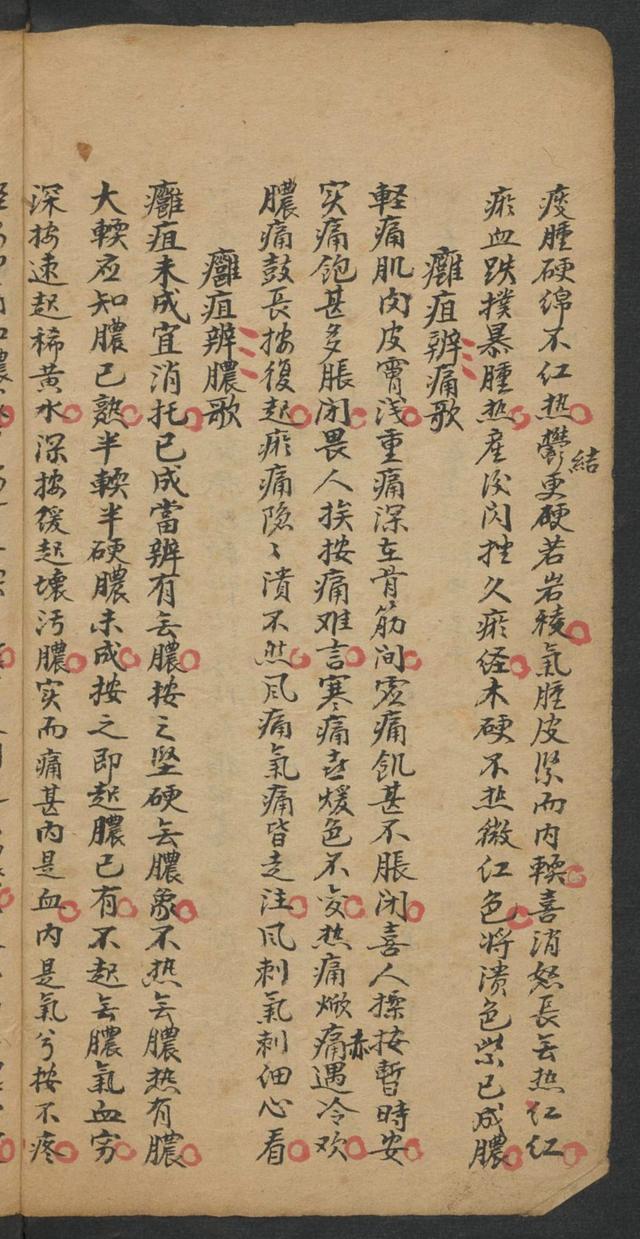 痰腫硬绵不红热鬱結更硬若岩稜氣腫皮緊而内輭喜消怒長无热红红
瘀血跌撲暴腫热産後闪挫久瘀经木硬不热微红色将溃色紫已成膿
癰疽辨痛歌
軽痛肌肉皮膚浅重痛深在骨筋间虚痛飢甚不脹闭喜人揉按暫時安
实痛饱甚多脹闭畏人挨按痛难言寒痛喜煖色不变热痛焮赤痛遇冷欢
膿痛鼓長按復起瘀痛隐〻溃不然风痛氣痛皆走注风刺氣刺细心看
癰疽辨膿歌
癰疽未成宜消托已成當辨有无膿按之坚硬无膿象不热无膿热有膿
大輭应知膿已熟半輭半硬膿未成按之即起膿已有不起无膿氣血穷
深按速起稀黄水深按缓起壊污膿实而痛甚内是血内是氣兮按不疼